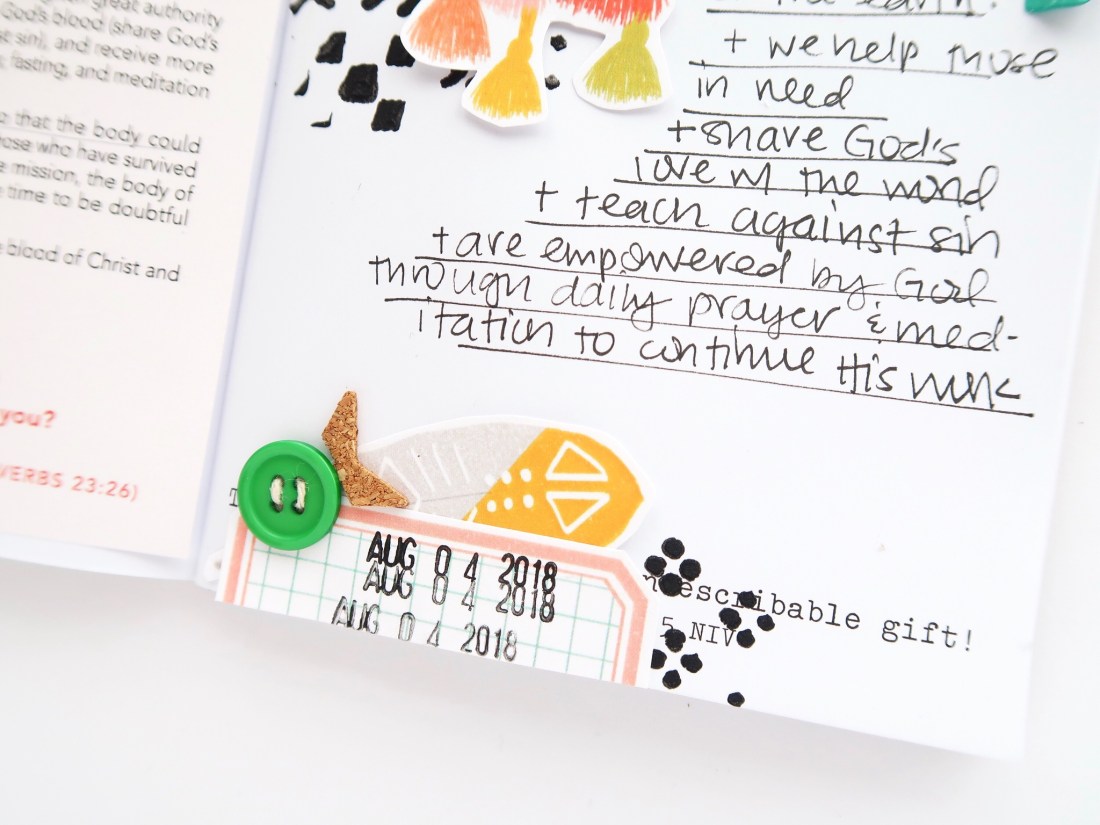 great authority
God's blood (share God's
sin), and receive more
fasting, and meditation
that the body could
who have survived
mission, the body of
time to be doubtful
blood of Christ and
you?
VERBS 23:26)
+ we help those
in need
+ share God's
love w/ the world
+ teach against sin
+ are empowered by God
through daily prayer & med-
itation to continue His work
AUG 04 2018
AUG 04 2018
AUG 04 2018
escribable gift!
5 NIV